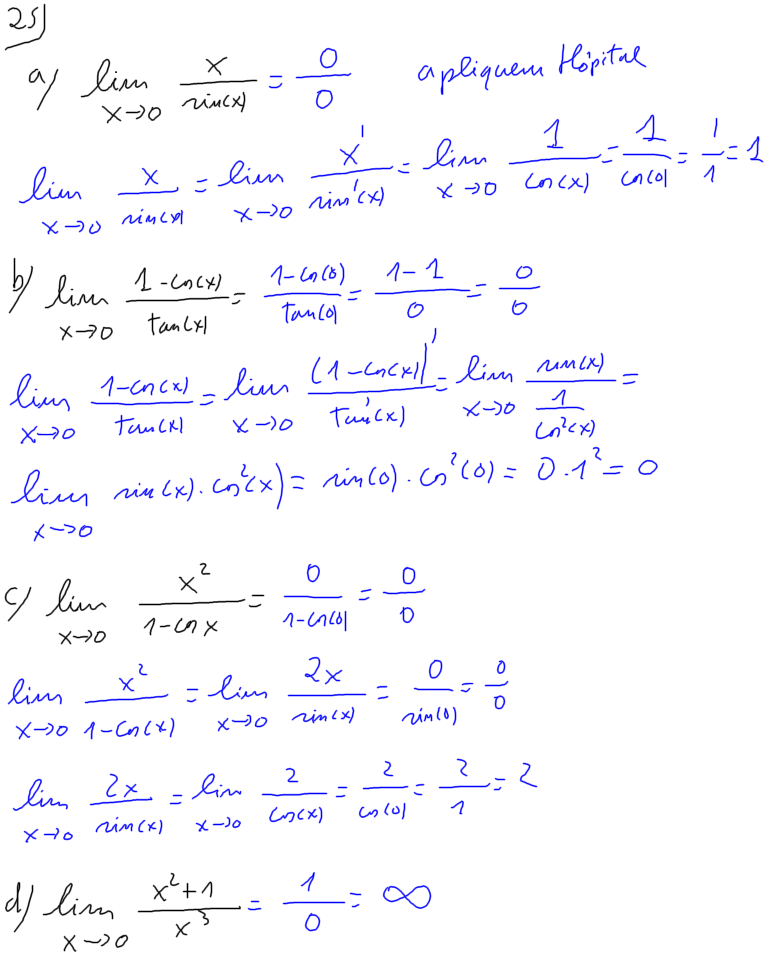 25)
a) lim x→0 x/sin(x) = 0/0 apliquem Hôpital
lim x→0 x/sin(x) = lim x→0 x'/sin'(x) = lim x→0 1/cos(x) = 1/cos(0) = 1/1 = 1
b) lim x→0 (1-cos(x))/tan(x) = (1-cos(0))/tan(0) = (1-1)/0 = 0/0
lim x→0 (1-cos(x))/tan(x) = lim x→0 (1-cos(x))'/tan'(x) = lim x→0 sin(x)/(1/cos²(x)) =
lim x→0 sin(x)·cos²(x) = sin(0)·cos²(0) = 0·1² = 0
c) lim x→0 x²/(1-cos x) = 0/(1-cos(0)) = 0/0
lim x→0 x²/(1-cos(x)) = lim x→0 2x/sin(x) = 0/sin(0) = 0/0
lim x→0 2x/sin(x) = lim x→0 2/cos(x) = 2/cos(0) = 2/1 = 2
d) lim x→0 (x²+1)/x³ = 1/0 = ∞